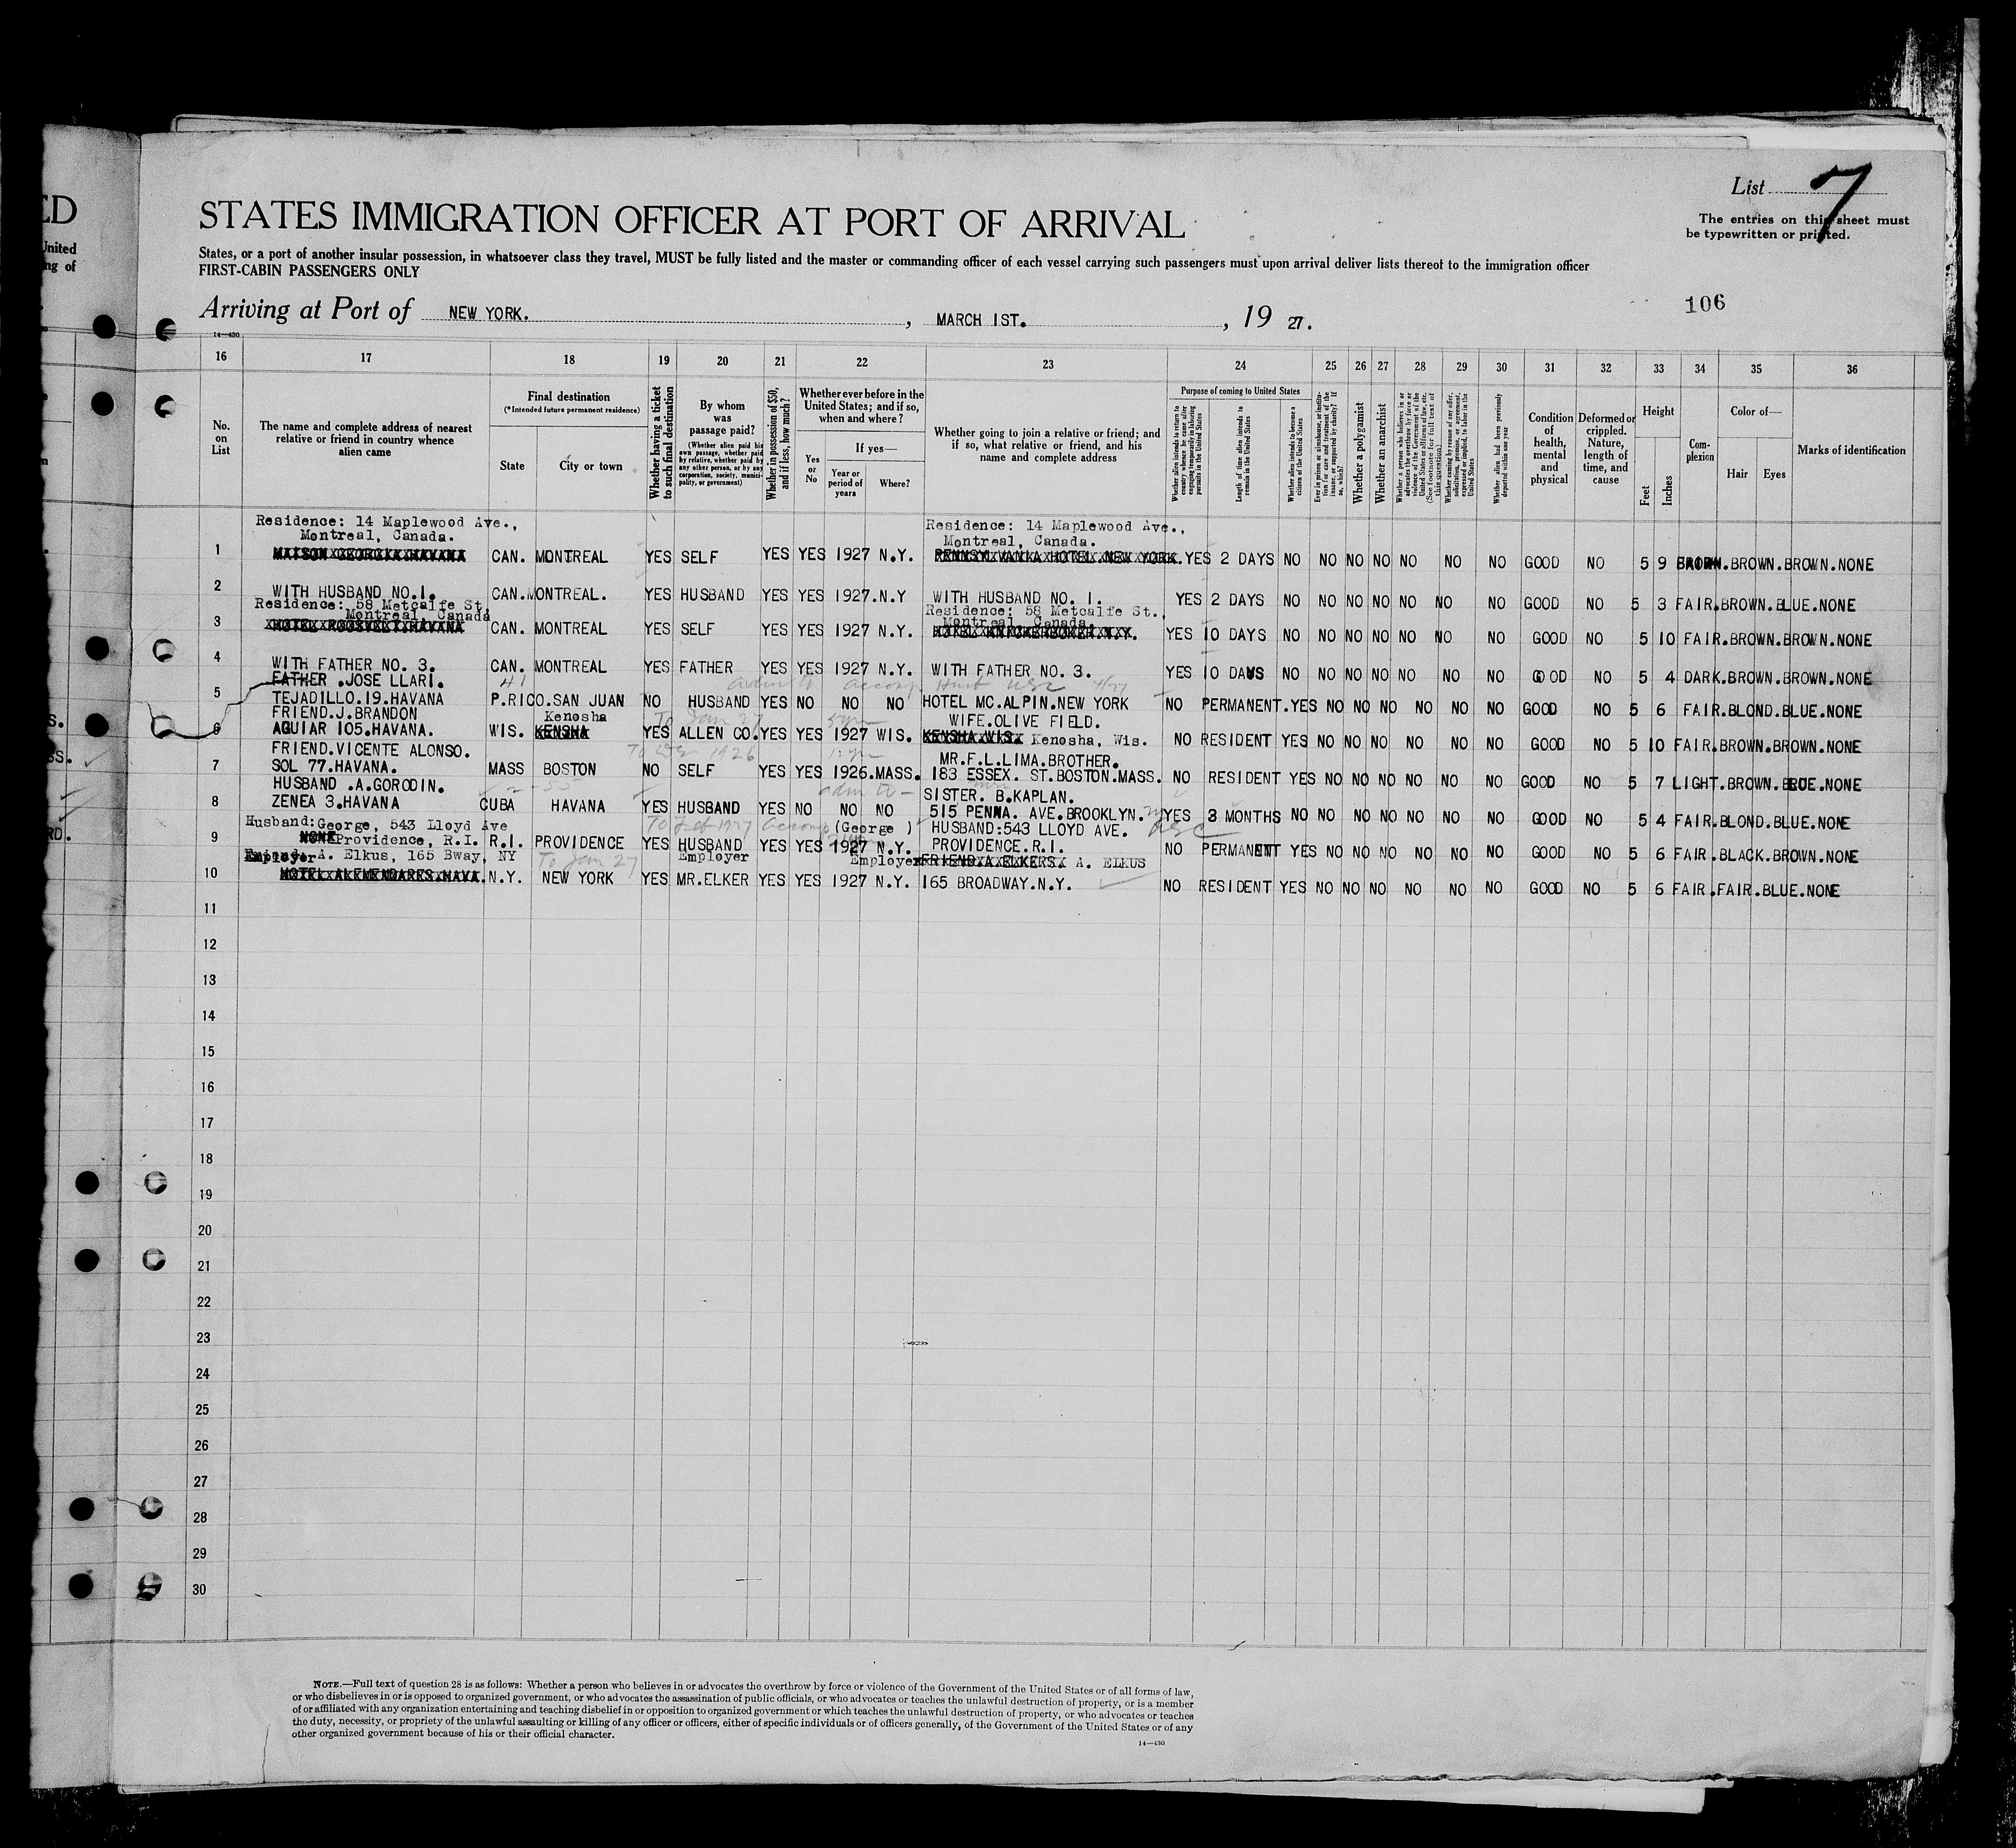 ED
United
ng of
List 7
The entries on this sheet must
be typewritten or printed.
STATES IMMIGRATION OFFICER AT PORT OF ARRIVAL
States, or a port of another insular possession, in whatsoever class they travel, MUST be fully listed and the master or commanding officer of each vessel carrying such passengers must upon arrival deliver lists thereof to the immigration officer
FIRST-CABIN PASSENGERS ONLY
106
Arriving at Port of NEW YORK. , MARCH 1ST. , 19 27.
14—430
16 17 18 19 20 21 22 23 24 25 26 27 28 29 30 31 32 33 34 35 36
No. on List
The name and complete address of nearest relative or friend in country whence alien came
Final destination
(*Intended future permanent residence)
State
City or town
Whether having a ticket to such final destination
By whom was passage paid?
(Whether alien paid his own passage, whether paid by relative, whether paid by any other person, or by any corporation, society, municipality, or government)
Whether in possession of $50, and if less, how much?
Whether ever before in the United States; and if so, when and where?
Yes or No
If yes—
Year or period of years
Where?
Whether going to join a relative or friend; and if so, what relative or friend, and his name and complete address
Purpose of coming to United States
Whether alien intends to return to country whence he came after engaging temporarily in laboring pursuits in the United States
Length of time alien intends to remain in the United States
Whether alien intends to become a citizen of the United States
Ever in prison or almshouse, or institution for care and treatment of the insane, or supported by charity? If so, which?
Whether a polygamist
Whether an anarchist
Whether a person who believes in or advocates the overthrow by force or violence of the Government of the United States or all forms of law, etc. (See footnote for full text of this question)
Whether coming by reason of any offer, solicitation, promise, or agreement, expressed or implied, to labor in the United States
Whether alien had been previously deported within one year
Condition of health, mental and physical
Deformed or crippled. Nature, length of time, and cause
Height
Feet
Inches
Complexion
Color of—
Hair Eyes
Marks of identification
Residence: 14 Maplewood Ave., Residence: 14 Maplewood Ave.,
Montreal, Canada. Montreal, Canada.
1 CAN. MONTREAL YES SELF YES YES 1927 N.Y. PENNSYLVANIA HOTEL NEW YORK. YES 2 DAYS NO NO NO NO NO NO NO GOOD NO 5 9 BROWN. BROWN. NONE
2 WITH HUSBAND NO.1. CAN. MONTREAL. YES HUSBAND YES YES 1927. N.Y WITH HUSBAND NO. 1. YES 2 DAYS NO NO NO NO NO NO NO GOOD NO 5 3 FAIR. BROWN. BLUE. NONE
Residence: 58 Metcalfe St. Residence: 58 Metcalfe St.,
Montreal Canada Montreal, Canada.
3 HOTEL ROOSVELT. HAVANA CAN. MONTREAL YES SELF YES YES 1927 N.Y. HOTEL KNICKERBOKER. N.Y. YES 10 DAYS NO NO NO NO NO NO NO GOOD NO 5 10 FAIR. BROWN. BROWN. NONE
4 WITH FATHER NO. 3. CAN. MONTREAL YES FATHER YES YES 1927 N.Y. WITH FATHER NO. 3. YES 10 DAYS NO NO NO NO NO NO NO GOOD NO 5 4 DARK. BROWN. BROWN. NONE
FATHER .JOSE LLARI.
5 TEJADILLO.19.HAVANA P.RICO. SAN JUAN NO HUSBAND YES NO NO NO HOTEL MC.ALPIN.NEW YORK NO PERMANENT. YES NO NO NO NO NO NO GOOD NO 5 6 FAIR. BLOND. BLUE. NONE
FRIEND.J.BRANDON Kenosha WIFE.OLIVE FIELD.
6 AGUIAR 105.HAVANA. WIS. KENSHA YES ALLEN CO. YES YES 1927 WIS. KENSHA.WIS. Kenosha, Wis. NO RESIDENT YES NO NO NO NO NO NO GOOD NO 5 10 FAIR. BROWN. BROWN. NONE
FRIEND.VICENTE ALONSO. MR.F.L.LIMA.BROTHER.
7 SOL 77.HAVANA. MASS BOSTON NO SELF YES YES 1926. MASS. 183 ESSEX. ST.BOSTON.MASS. NO RESIDENT YES NO NO NO NO NO NO GOOD NO 5 7 LIGHT. BROWN. BLUE. NONE
HUSBAND .A.GORODIN. SISTER. B.KAPLAN.
8 ZENEA 3.HAVANA CUBA HAVANA YES HUSBAND YES NO NO NO 515 PENNA. AVE.BROOKLYN. YES 3 MONTHS NO NO NO NO NO NO NO GOOD NO 5 4 FAIR. BLOND. BLUE. NONE
Husband: George, 543 Lloyd Ave (George ) HUSBAND:543 LLOYD AVE.
9 NONE Providence, R.I. R.I. PROVIDENCE YES HUSBAND YES YES 1927 N.Y. PROVIDENCE.R.I. NO PERMANENT YES NO NO NO NO NO NO GOOD NO 5 6 FAIR. BLACK. BROWN. NONE
Employer A. Elkus, 165 Bway, NY Employer Employer FRIEND.A.ELKERS. A. ELKUS
10 N.Y. NEW YORK YES MR.ELKER YES YES 1927 N.Y. 165 BROADWAY.N.Y. NO RESIDENT YES NO NO NO NO NO NO GOOD NO 5 6 FAIR. FAIR. BLUE. NONE
11
12
13
14
15
16
17
18
19
20
21
22
23
24
25
26
27
28
29
30
NOTE.—Full text of question 28 is as follows: Whether a person who believes in or advocates the overthrow by force or violence of the Government of the United States or of all forms of law,
or who disbelieves in or is opposed to organized government, or who advocates the assassination of public officials, or who advocates or teaches the unlawful destruction of property, or is a member
of or affiliated with any organization entertaining and teaching disbelief in or opposition to organized government or which teaches the unlawful destruction of property, or who advocates or teaches
the duty, necessity, or propriety of the unlawful assaulting or killing of any officer or officers, either of specific individuals or of officers generally, of the Government of the United States or of any
other organized government because of his or their official character.
14—430